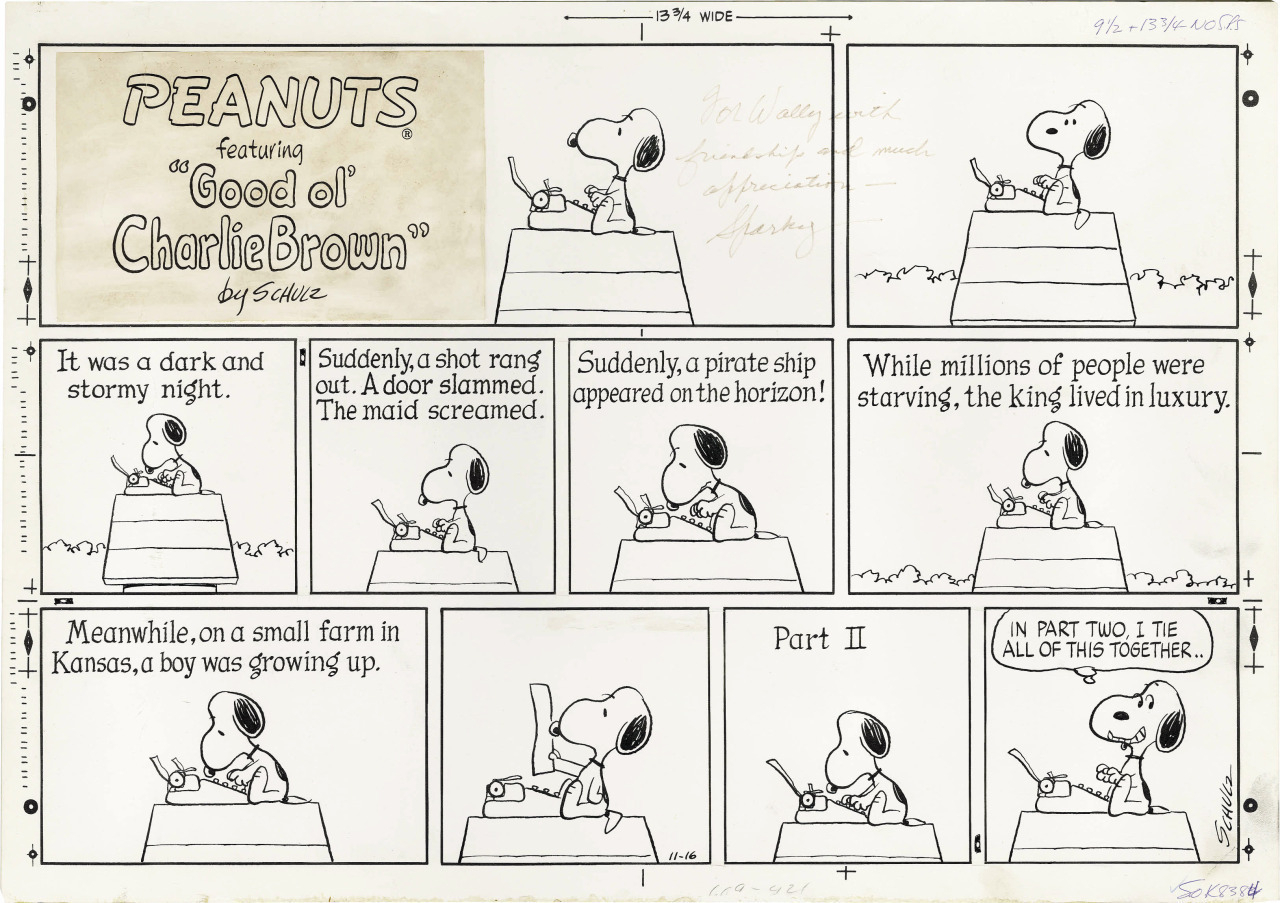 13 3/4 WIDE
9 1/2 + 13 3/4 NO SPS
PEANUTS
®
featuring
"Good ol'
Charlie Brown"
by SCHULZ
For Wally with
friendship and much
appreciation —
Sparky —
It was a dark and
stormy night.
Suddenly, a shot rang
out. A door slammed.
The maid screamed.
Suddenly, a pirate ship
appeared on the horizon!
While millions of people were
starving, the king lived in luxury.
Meanwhile, on a small farm in
Kansas, a boy was growing up.
11-16
Part II
IN PART TWO, I TIE
ALL OF THIS TOGETHER..
SCHULZ